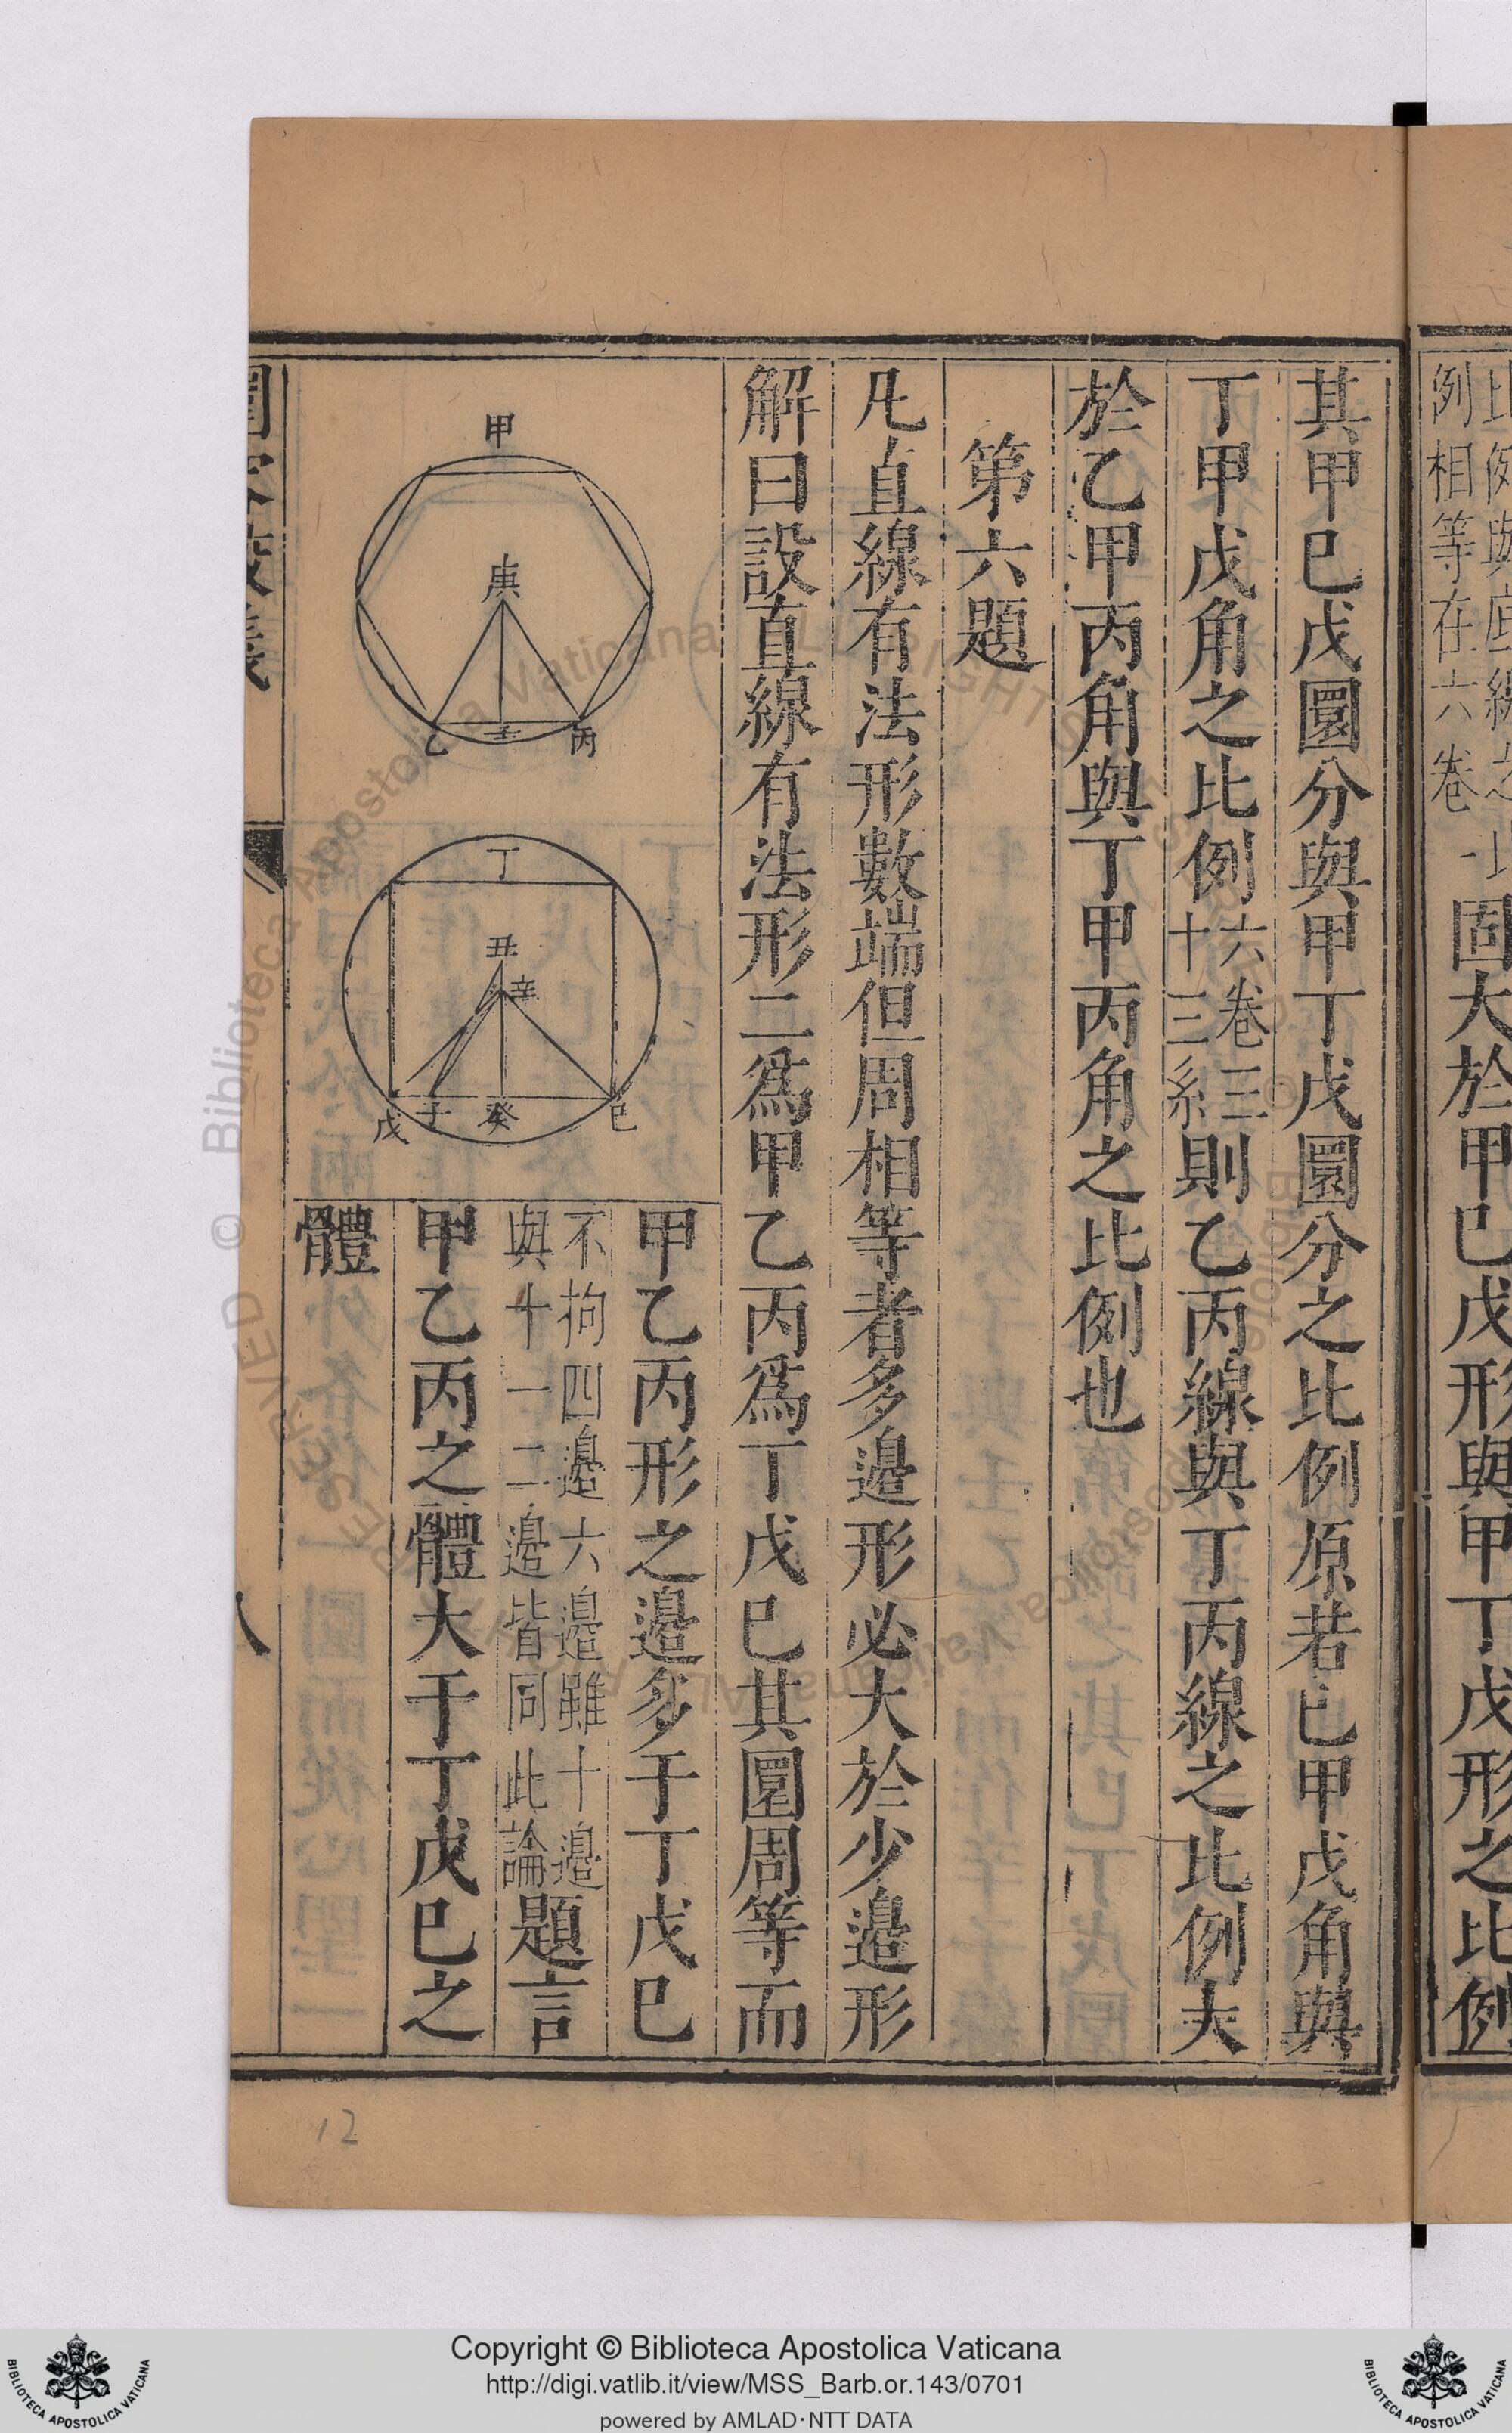 例相等在六卷一
固大於甲巳戊形與甲丁戊形之比例
其甲巳戊圜分與甲丁戊圜分之比例原若巳甲戊角與
丁甲戊角之比例六卷三
十三系則乙丙線與丁丙線之比例夫
於乙甲丙角與丁甲丙角之比例也
第六題
凡直線有法形數端但周相等者多邉形必大於少邉形
解曰設直線有法形二爲甲乙丙爲丁戊巳其圜周等而
甲乙丙形之邉多于丁戊巳
不拘四邉六邉雖十邉
與十一二邉皆同此論題言
甲乙丙之體大于丁戊巳之
體
甲
庚
乙
壬
丙
丁
丑
辛
戊
子
癸
巳
圜容較義
八
12
Copyright © Biblioteca Apostolica Vaticana
http://digi.vatlib.it/view/MSS_Barb.or.143/0701
powered by AMLAD·NTT DATA
BIBLIOTECA APOSTOLICA VATICANA
BIBLIOTECA APOSTOLICA VATICANA